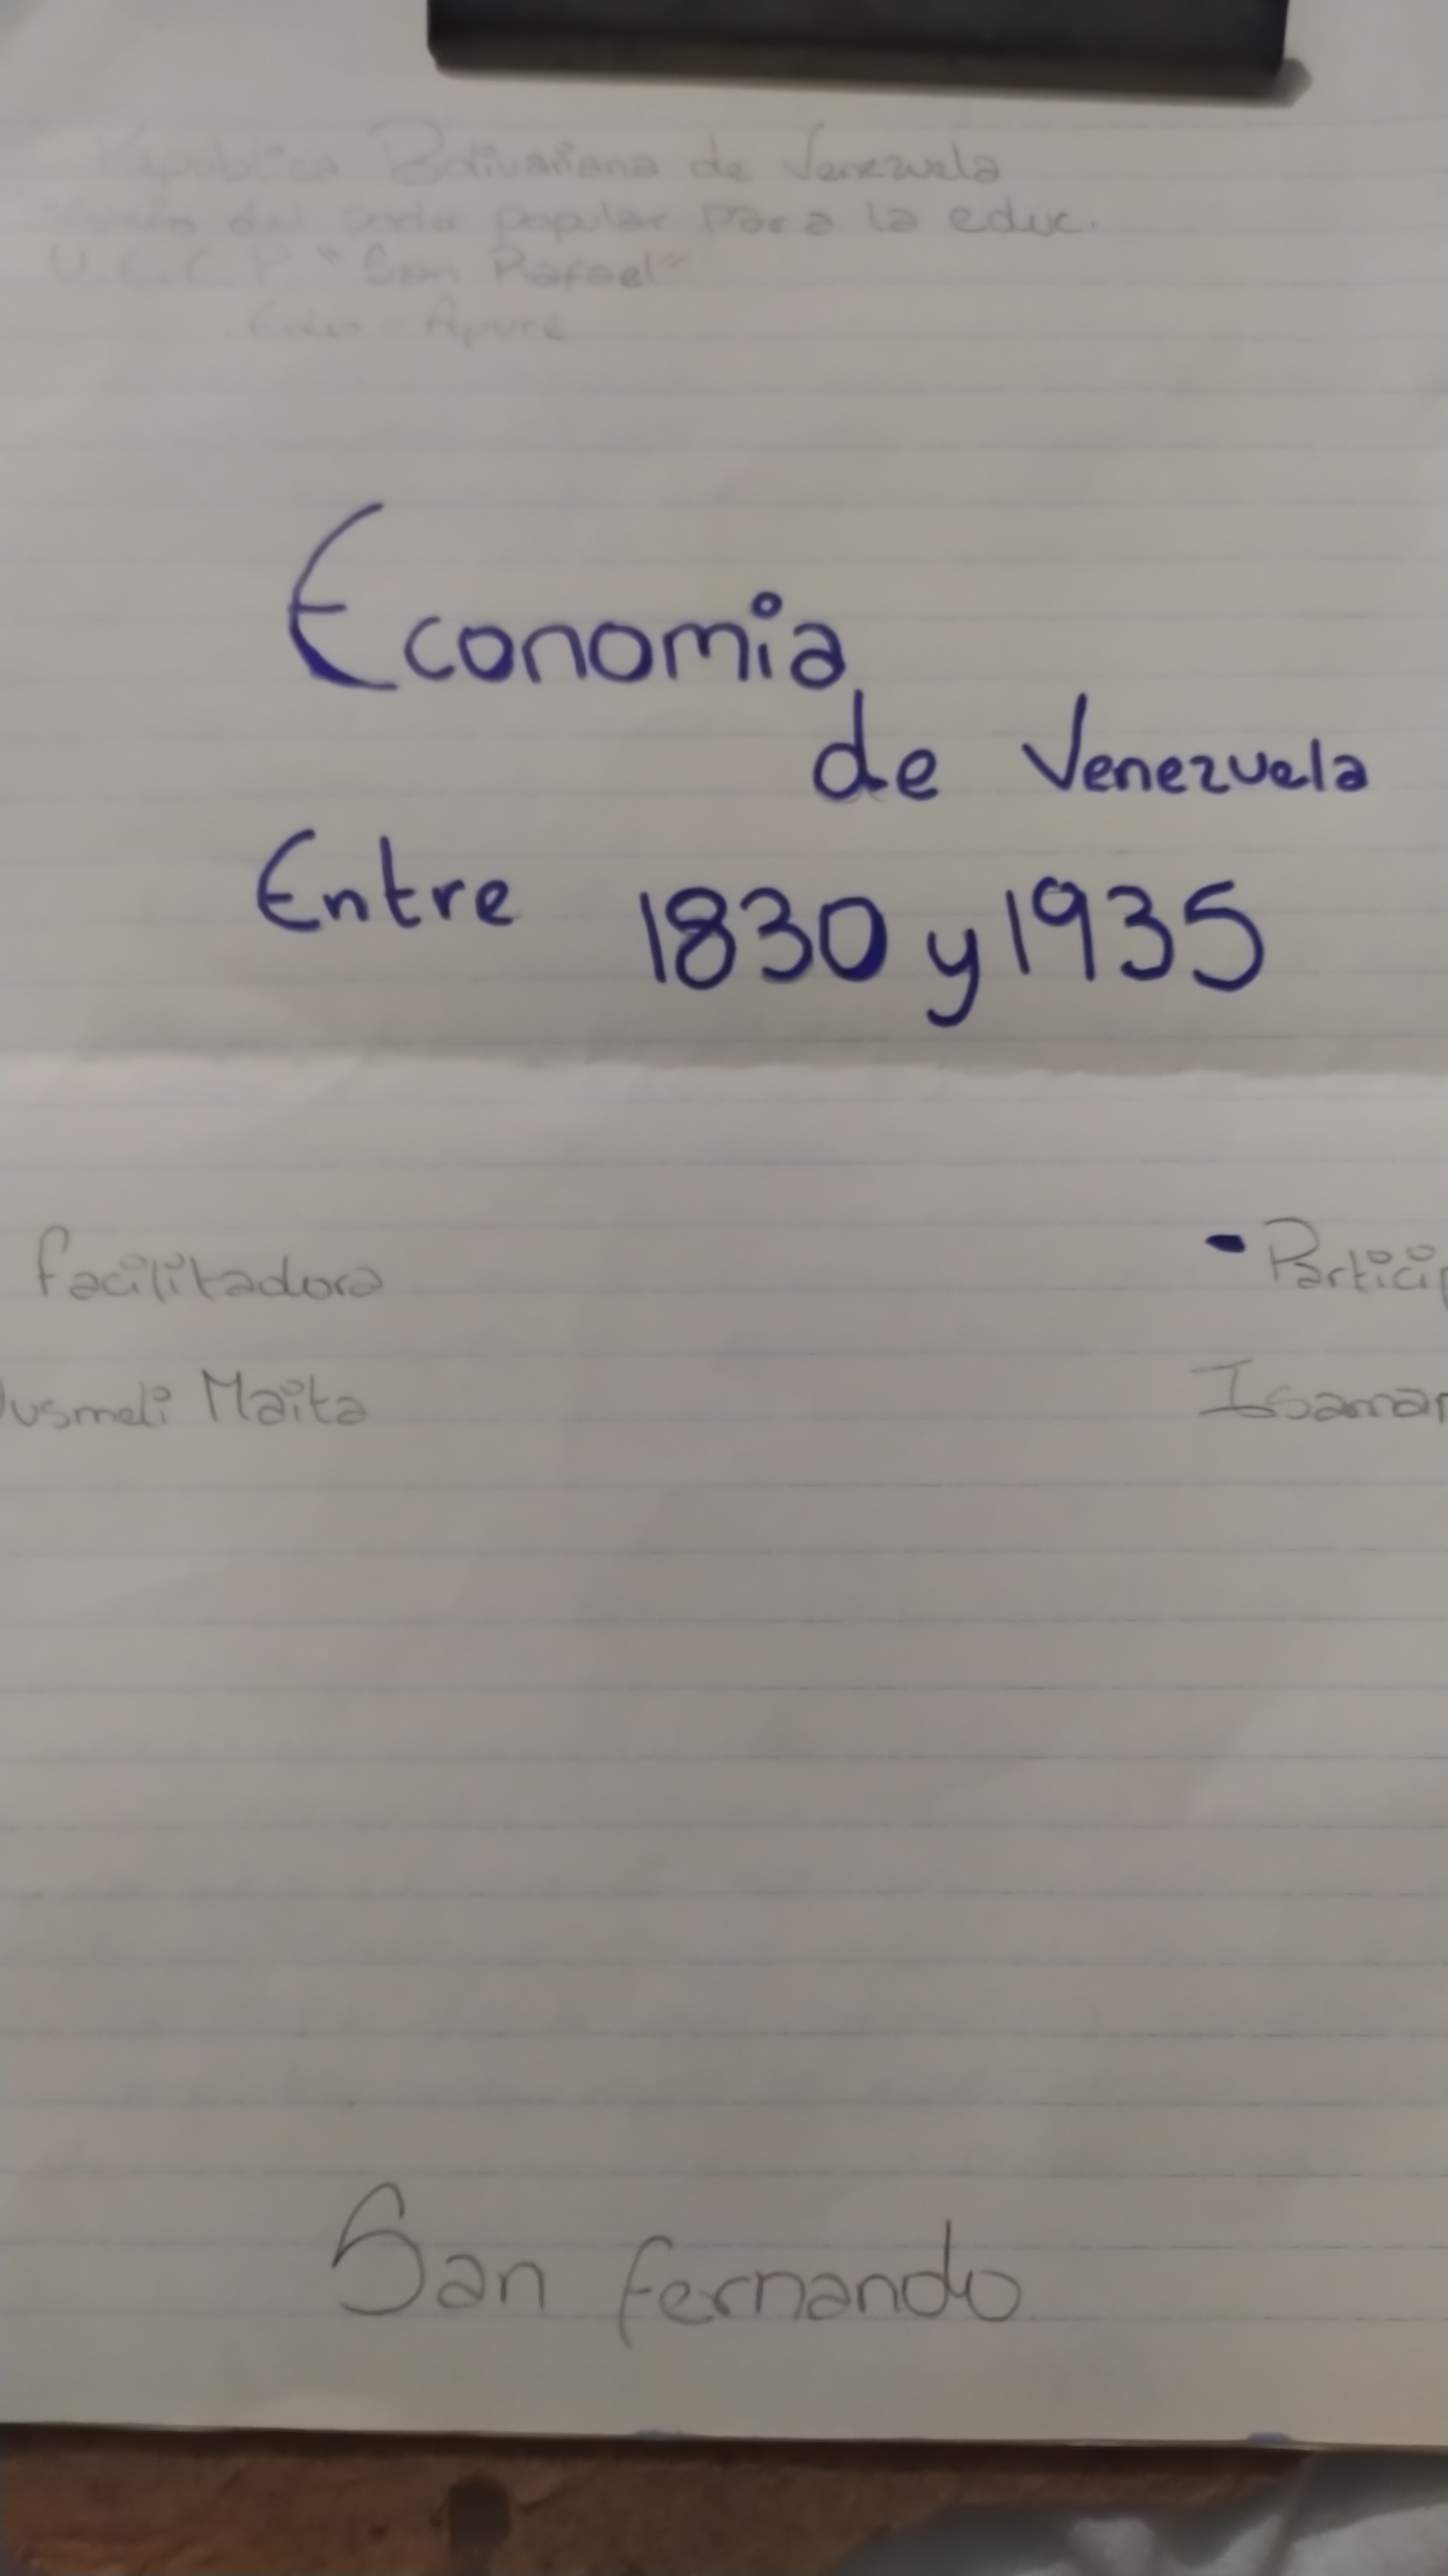 Republica Bolivariana de Venezuela
del poder popular para la educ.
U.E.C.P. "San Rafael"
Edo - Apure
Economia
de Venezuela
Entre 1830 y 1935
facilitadora
Particip
usmeli Maita
Isamar
San fernando